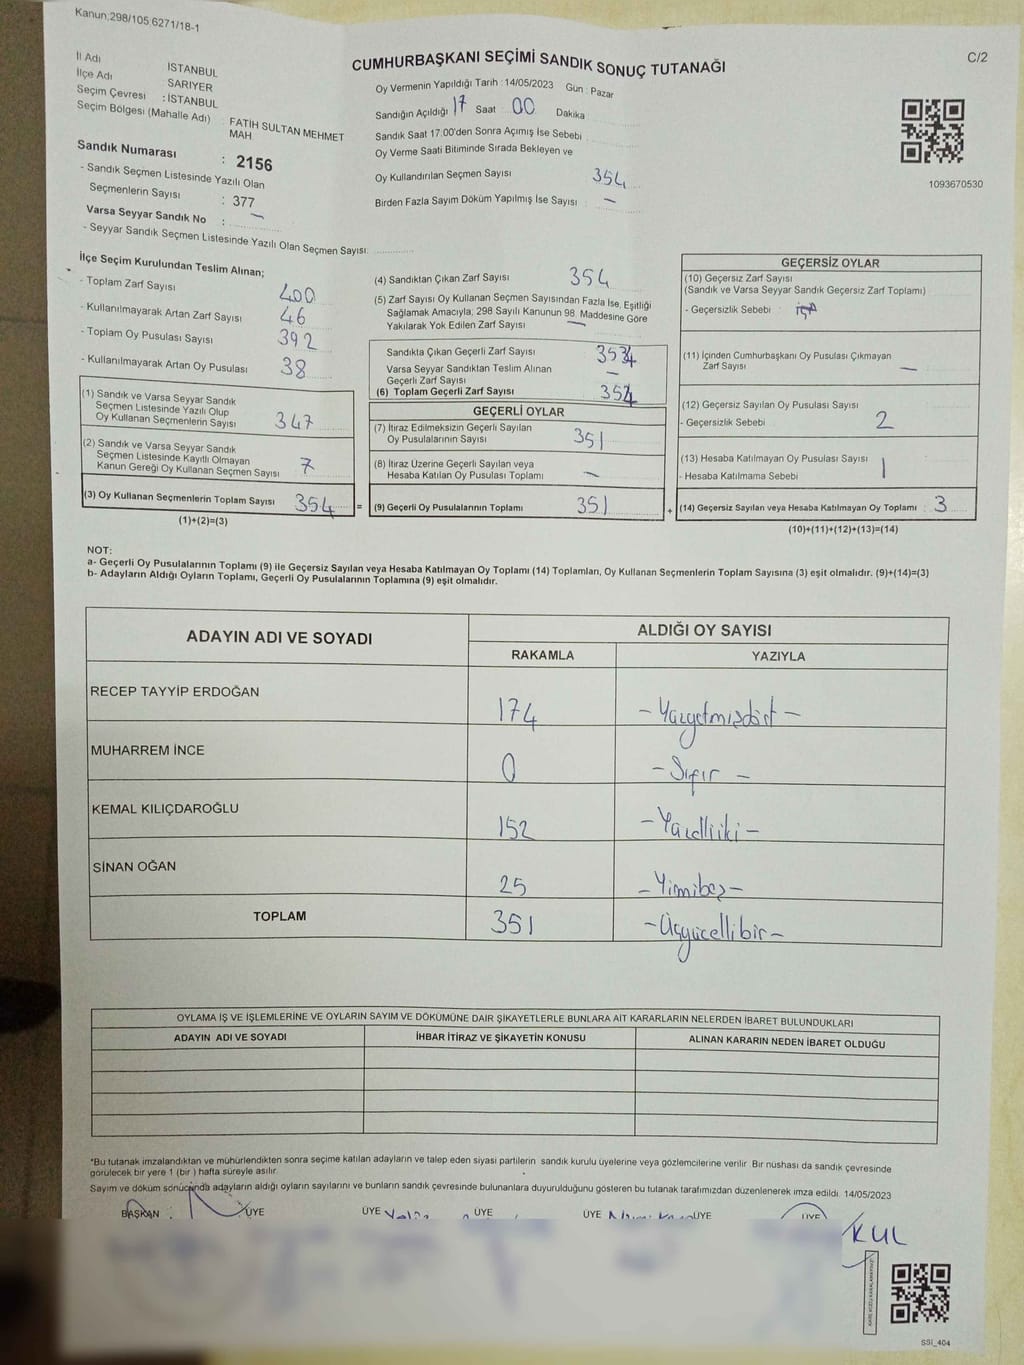 Kanun;298/105,6271/18-1
C/2
CUMHURBAŞKANI SEÇİMİ SANDIK SONUÇ TUTANAĞI
İl Adı İSTANBUL
İlçe Adı SARIYER
Seçim Çevresi : İSTANBUL
Seçim Bölgesi (Mahalle Adı) : FATİH SULTAN MEHMET MAH
Sandık Numarası : 2156
- Sandık Seçmen Listesinde Yazılı Olan
Seçmenlerin Sayısı : 377
Varsa Seyyar Sandık No : —
- Seyyar Sandık Seçmen Listesinde Yazılı Olan Seçmen Sayısı:
Oy Vermenin Yapıldığı Tarih : 14/05/2023 Gün : Pazar
Sandığın Açıldığı 17 Saat 00 Dakika
Sandık Saat 17.00'den Sonra Açımış İse Sebebi
Oy Verme Saati Bitiminde Sırada Bekleyen ve
Oy Kullandırılan Seçmen Sayısı 354
Birden Fazla Sayım Döküm Yapılmış İse Sayısı —
1093670530
İlçe Seçim Kurulundan Teslim Alınan;
- Toplam Zarf Sayısı 400
- Kullanılmayarak Artan Zarf Sayısı 46
- Toplam Oy Pusulası Sayısı 392
- Kullanılmayarak Artan Oy Pusulası 38
(1) Sandık ve Varsa Seyyar Sandık
Seçmen Listesinde Yazılı Olup
Oy Kullanan Seçmenlerin Sayısı 347
(2) Sandık ve Varsa Seyyar Sandık
Seçmen Listesinde Kayıtlı Olmayan
Kanun Gereği Oy Kullanan Seçmen Sayısı 7
(3) Oy Kullanan Seçmenlerin Toplam Sayısı 354 =
(1)+(2)=(3)
(4) Sandıktan Çıkan Zarf Sayısı 354
(5) Zarf Sayısı Oy Kullanan Seçmen Sayısından Fazla İse, Eşitliği
Sağlamak Amacıyla; 298 Sayılı Kanunun 98. Maddesine Göre
Yakılarak Yok Edilen Zarf Sayısı —
Sandıkta Çıkan Geçerli Zarf Sayısı 354
Varsa Seyyar Sandıktan Teslim Alınan
Geçerli Zarf Sayısı —
(6) Toplam Geçerli Zarf Sayısı 354
GEÇERLİ OYLAR
(7) İtiraz Edilmeksizin Geçerli Sayılan
Oy Pusulalarının Sayısı 351
(8) İtiraz Üzerine Geçerli Sayılan veya
Hesaba Katılan Oy Pusulası Toplamı —
(9) Geçerli Oy Pusulalarının Toplamı 351 +
GEÇERSİZ OYLAR
(10) Geçersiz Zarf Sayısı
(Sandık ve Varsa Seyyar Sandık Geçersiz Zarf Toplamı)
- Geçersizlik Sebebi
(11) İçinden Cumhurbaşkanı Oy Pusulası Çıkmayan
Zarf Sayısı —
(12) Geçersiz Sayılan Oy Pusulası Sayısı
- Geçersizlik Sebebi 2
(13) Hesaba Katılmayan Oy Pusulası Sayısı
- Hesaba Katılmama Sebebi 1
(14) Geçersiz Sayılan veya Hesaba Katılmayan Oy Toplamı : 3
(10)+(11)+(12)+(13)=(14)
NOT:
a- Geçerli Oy Pusulalarının Toplamı (9) ile Geçersiz Sayılan veya Hesaba Katılmayan Oy Toplamı (14) Toplamları, Oy Kullanan Seçmenlerin Toplam Sayısına (3) eşit olmalıdır. (9)+(14)=(3)
b- Adayların Aldığı Oyların Toplamı, Geçerli Oy Pusulalarının Toplamına (9) eşit olmalıdır.
ADAYIN ADI VE SOYADI ALDIĞI OY SAYISI
RAKAMLA YAZIYLA
RECEP TAYYİP ERDOĞAN 174 - Yüzyetmişdört -
MUHARREM İNCE 0 - Sıfır -
KEMAL KILIÇDAROĞLU 152 - Yüzelliiki -
SİNAN OĞAN 25 - Yirmibeş -
TOPLAM 351 - Üçyüzellibir -
OYLAMA İŞ VE İŞLEMLERİNE VE OYLARIN SAYIM VE DÖKÜMÜNE DAİR ŞİKAYETLERLE BUNLARA AİT KARARLARIN NELERDEN İBARET BULUNDUKLARI
ADAYIN ADI VE SOYADI İHBAR İTİRAZ VE ŞİKAYETİN KONUSU ALINAN KARARIN NEDEN İBARET OLDUĞU
*Bu tutanak imzalandıktan ve mühürlendikten sonra seçime katılan adayların ve talep eden siyasi partilerin sandık kurulu üyelerine veya gözlemcilerine verilir. Bir nüshası da sandık çevresinde
görülecek bir yere 1 (bir) hafta süreyle asılır.
Sayım ve döküm sonucunda adayların aldığı oyların sayılarını ve bunların sandık çevresinde bulunanlara duyurulduğunu gösteren bu tutanak tarafımızdan düzenlenerek imza edildi. 14/05/2023
BAŞKAN ÜYE ÜYE ÜYE ÜYE ÜYE ÜYE
KUL
SSİ_404